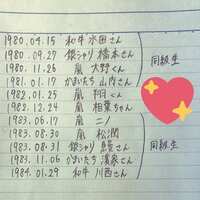 1980.04.15 和牛 水田さん
1980.09.27 銀シャリ 橋本さん
1980.11.26 嵐 大野くん
1981.01.17 かまいたち 山内さん
1982.01.25 嵐 翔くん
1982.12.24 嵐 相葉ちゃん
1983.06.17 嵐 ニノ
1983.08.30 嵐 松潤
1983.08.31 銀シャリ 鰻さん
1983.11.06 かまいたち 濱家さん
1984.01.29 和牛 川西さん
同級生
同級生